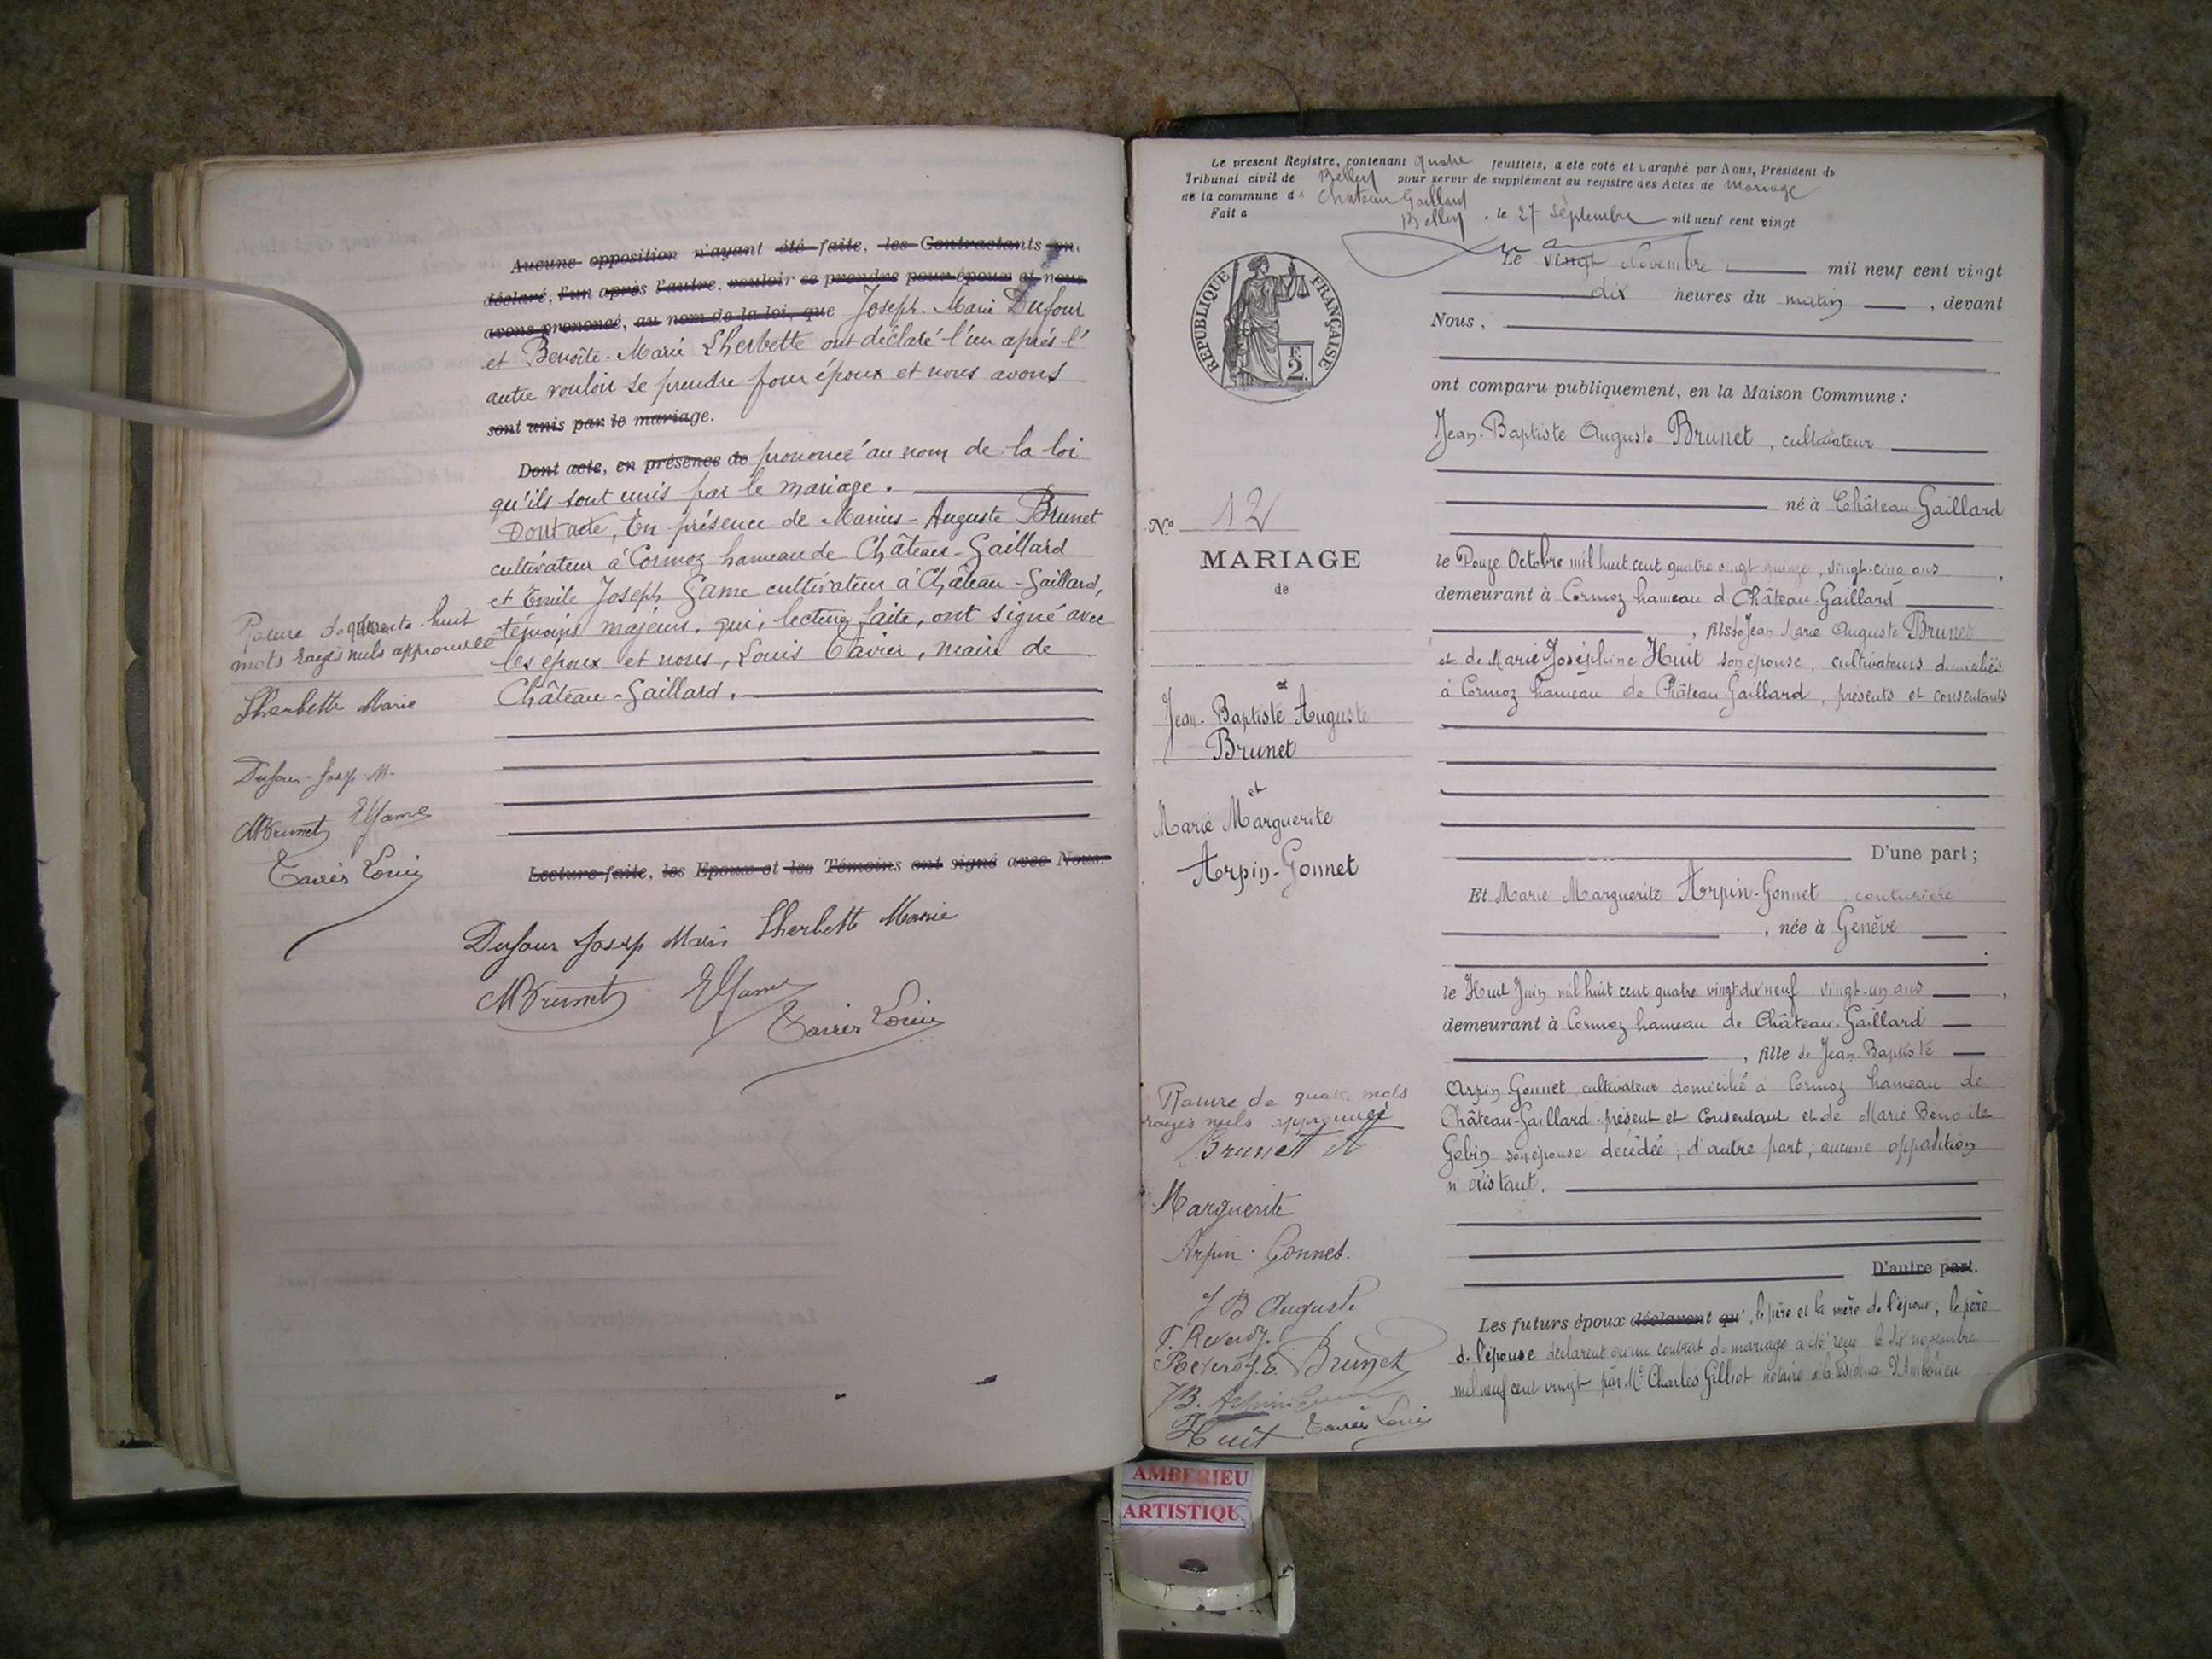 Aucune opposition n'ayant été faite, les Contractants on
déclaré, l'un après l'autre, vouloir se prendre pour époux et nous
avons prononcé, au nom de la loi, que Joseph-Marie Dufour
et Benoîte-Marie Lherbette ont déclaré l'un après l'
autre vouloir se prendre pour époux et nous avons
sont unis par le mariage.
Dont acte, en présence de prononcé au nom de la loi
qu'ils sont unis par le mariage.
Dont acte, En présence de Marius-Auguste Brunet
cultivateur à Cormoz hameau de Château-Gaillard
et Emile Joseph Game cultivateur à Château-Gaillard,
témoins majeurs, qui, lecture faite, ont signé avec
les époux et nous, Louis Tavier, maire de
Château-Gaillard.
Rature de quarante-huit
mots rayés nuls approuvée
Lherbette Marie
Dufour Josep M.
MBrunet EGame
Tavier Louis
Lecture faite, les Epoux et les Témoins ont signé avec Nous.
Dufour Josep Marie Lherbette Marie
MBrunet EGame
Tavier Louis
Le présent Registre, contenant quatre feuillets, a été coté et paraphé par Nous, Président du
Tribunal civil de Belley pour servir de supplément au registre des Actes de Mariage
de la commune de Chateau Gaillard
Fait a Belley, le 27 septembre mil neuf cent vingt
Le vingt Novembre mil neuf cent vingt
dix heures du matin, devant
Nous,
ont comparu publiquement, en la Maison Commune :
Jean-Baptiste Auguste Brunet, cultivateur
né à Château-Gaillard
le Douze Octobre mil huit cent quatre vingt quinze, vingt-cinq ans,
demeurant à Cormoz hameau d Château-Gaillard
, fils de Jean Marie Auguste Brunet
et de Marie Joséphine Huit son épouse, cultivateurs domiciliés
à Cormoz hameau de Château-Gaillard, présents et consentants
D'une part ;
Et Marie Marguerite Arpin-Gonnet couturière
, née à Genève
le Huit Juin mil huit cent quatre vingt dix neuf vingt-un ans,
demeurant à Cormoz hameau de Château-Gaillard
, fille de Jean-Baptiste
Arpin Gonnet cultivateur domicilié à Cormoz hameau de
Château-Gaillard présent et consentant et de Marie Benoîte
Gobin son épouse décédée ; d'autre part ; aucune opposition
n'existant.
D'autre part.
Les futurs époux déclarent qu', le père et la mère de l'époux ; le père
de l'épouse déclarent qu'un contrat de mariage a été reçu le dix novembre
mil neuf cent vingt par Me Charles Gilliot notaire à la résidence d'Ambérieu
RÉPUBLIQUE FRANÇAISE
F.
2.
No 12
MARIAGE
de
Jean-Baptiste Auguste
Brunet
et
Marie Marguerite
Arpin-Gonnet
Rature de quatre mots
rayés nuls approuvée
Brunet A
Marguerite
Arpin-Gonnet.
J B Auguste
F. Reverdy.
Reverdy. E. Brunet
JB. Arpin
Huit Tavier Louis
AMBERIEU
ARTISTIQU